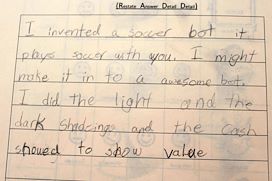 (Restate Answer Detail Detail)
I invented a soccer bot it
plays soccer with you. I might
make it in to a awesome bot.
I did the light and the
dark Shadcings and the cash
showed to show value